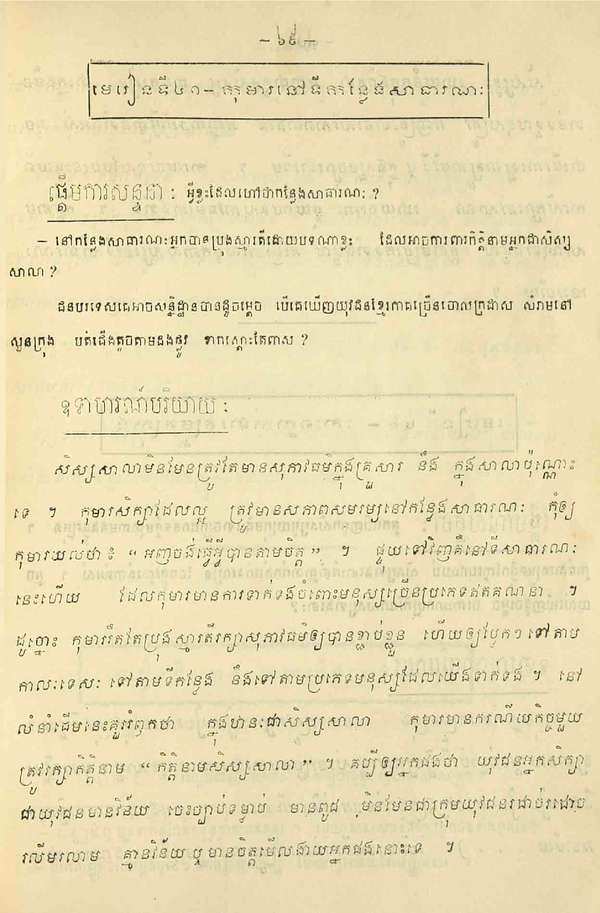 – ៦៩ –
មេរៀនទី៤១– កុមារនៅទីកន្លែងសាធារណៈ
ផ្ដើមការសន្ទនា : អ្វីខ្លះដែលហៅថាកន្លែងសាធារណៈ ?
– នៅកន្លែងសាធារណៈអ្នកបានប្រុងស្មារតីដោយបទណាខ្លះ ដែលអាចការពារកិត្តិនាមអ្នកជាសិស្ស
សាលា ?
ជនបរទេសគេអាចសន្និដ្ឋានបានដូចម្ដេច បើគេឃើញយុវជនខ្មែរភាគច្រើនចោលក្រដាស សំរាមនៅ
សួនក្រុង បត់ជើងតូចតាមដងផ្លូវ ខាកស្ដោះតែពាស ?
ឧទាហរណ៍បរិយាយ :
សិស្សសាលាមិនមែនត្រូវតែមានសុភាវធម៌ក្នុងគ្រួសារ នឹង ក្នុងសាលាប៉ុណ្ណោះ
ទេ ។ កុមារសិក្សាដែលល្អ ត្រូវមានសភាពសមរម្យនៅកន្លែងសាធារណៈ កុំឲ្យ
កុមារយល់ថា ៖ “ អញចង់ធ្វើអ្វីបានតាមចិត្ត ” ។ ផ្ទុយទៅវិញគឺនៅទីសាធារណៈ
នេះហើយ ដែលកុមារមានការទាក់ទងចំពោះមនុស្សច្រើនប្រភេទឥតគណនា ។
ដូច្នោះ កុមាររឹតតែប្រុងស្មារតីរក្សាសុភាវធម៌ឲ្យបានខ្ជាប់ខ្ជួន ហើយឲ្យប្លែកៗទៅតាម
កាលៈទេសៈ ទៅតាមទីកន្លែង នឹងទៅតាមប្រភេទមនុស្សដែលយើងទាក់ទង ។ នៅ
លំនាំដើមនេះគួររំឭកថា ក្នុងឋានៈជាសិស្សសាលា កុមារមានករណីយកិច្ចមួយ
ត្រូវរក្សាកិត្តិនាម “ កិត្តិនាមសិស្សសាលា ” ។ គប្បីឲ្យអ្នកផងថា យុវជនអ្នកសិក្សា
ជាយុវជនមានវិន័យ ចេះច្បាប់ទម្លាប់ មានពូជ មិនមែនជាក្រុមយុវជនរដាច់រដោច
រលើមរលាម គ្មានវិន័យ ឬ មានចិត្តមើលងាយអ្នកផងនោះទេ ។